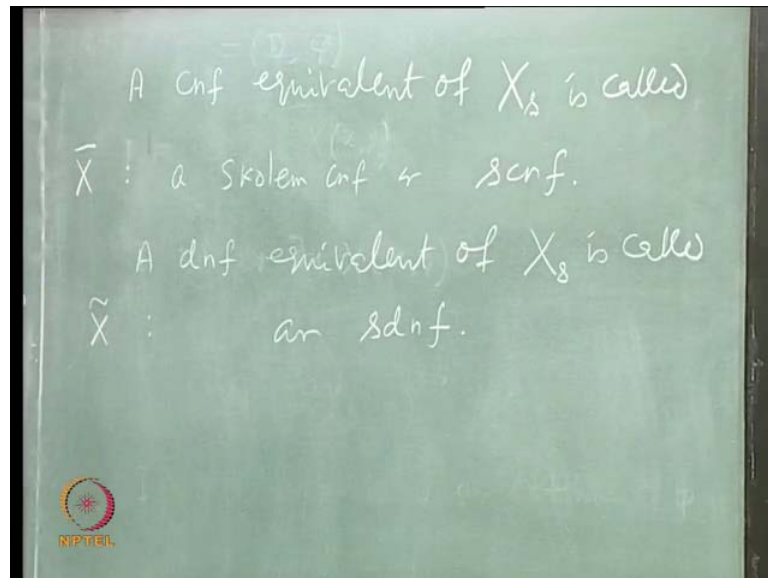 A cnf equivalent of Xₛ is called
X̄ : a Skolem cnf or scnf.
A dnf equivalent of Xₛ is calle
X̃ : an sdnf.
NPTEL